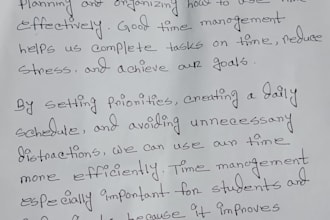 Planning and organizing how to use time
effectively. Good time management
helps us complete tasks on time, reduce
stress, and achieve our goals.
By setting priorities, creating a daily
schedule, and avoiding unnecessary
distractions, we can use our time
more efficiently. Time management
especially important for students and
because it improves